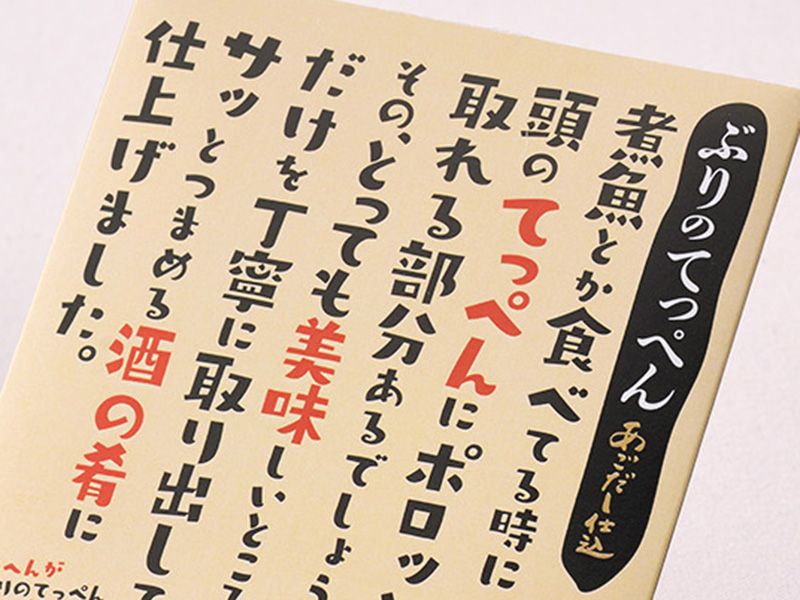 ぶりのてっぺん あごだし仕込
煮魚とか食べてる時に
頭のてっぺんにポロッ
取れる部分あるでしょう
その、とっても美味しいところ
だけを丁寧に取り出して
サッとつまめる酒の肴に
仕上げました。
へんが
りのてっぺん